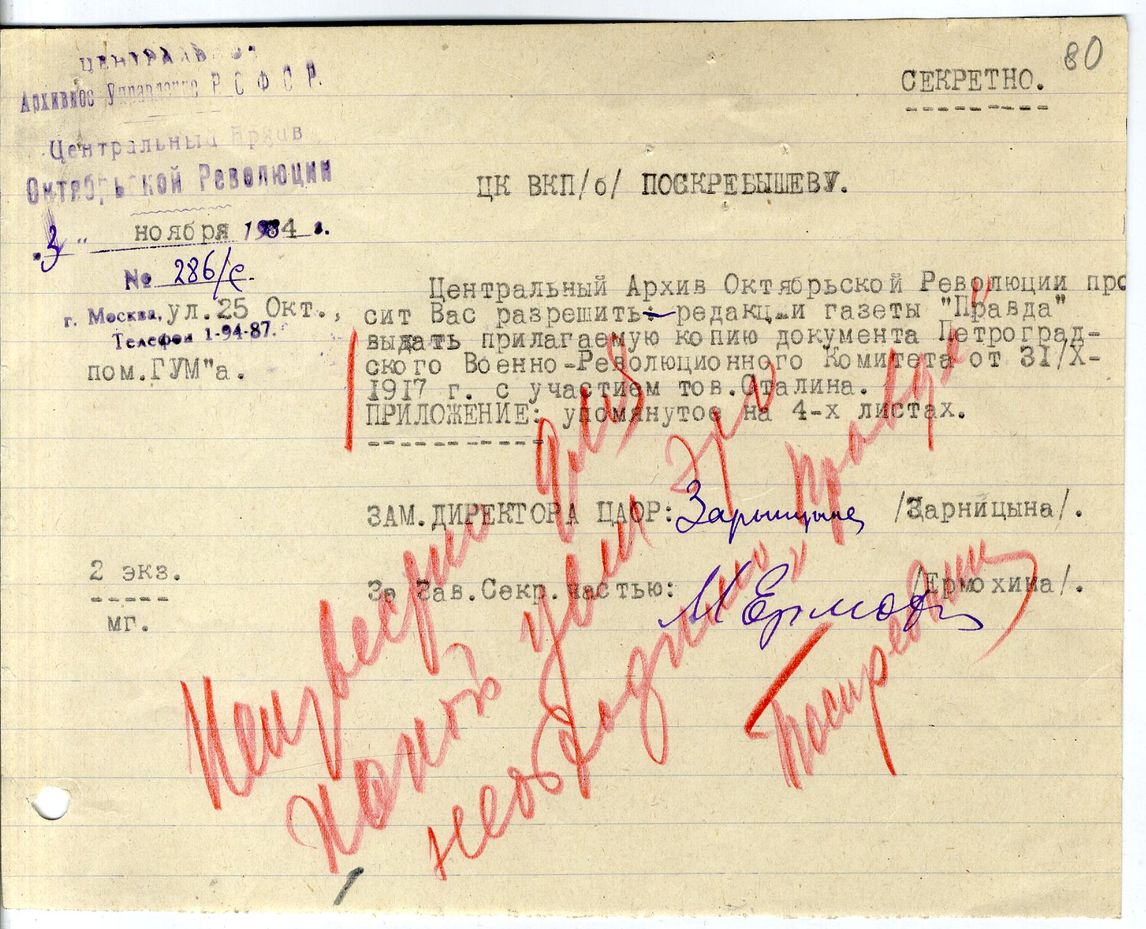 80
СЕКРЕТНО.
Архивное Управление Р С Ф С Р.
Центральный Архив
Октябрьской Революции
ЦК ВКП/б/ ПОСКРЕБЫШЕВУ.
"3" ноября 1934 г.
№ 286/с.
г. Москва, ул.25 Окт.,
Телефон 1-94-87.
пом.ГУМ"а.
Центральный Архив Октябрьской Революции про
сит Вас разрешить редакции газеты "Правда"
выдать прилагаемую копию документа Петроград-
ского Военно-Революционного Комитета от 31/X-
1917 г. с участием тов.Сталина.
ПРИЛОЖЕНИЕ: упомянутое на 4-х листах.
ЗАМ.ДИРЕКТОРА ЦАОР: Зарницына /Зарницына/.
2 экз.
За Зав.Секр.частью: М Ермохина /Ермохина/.
мг.
Неизвестно для
какой цели это
необходимо "Правде"